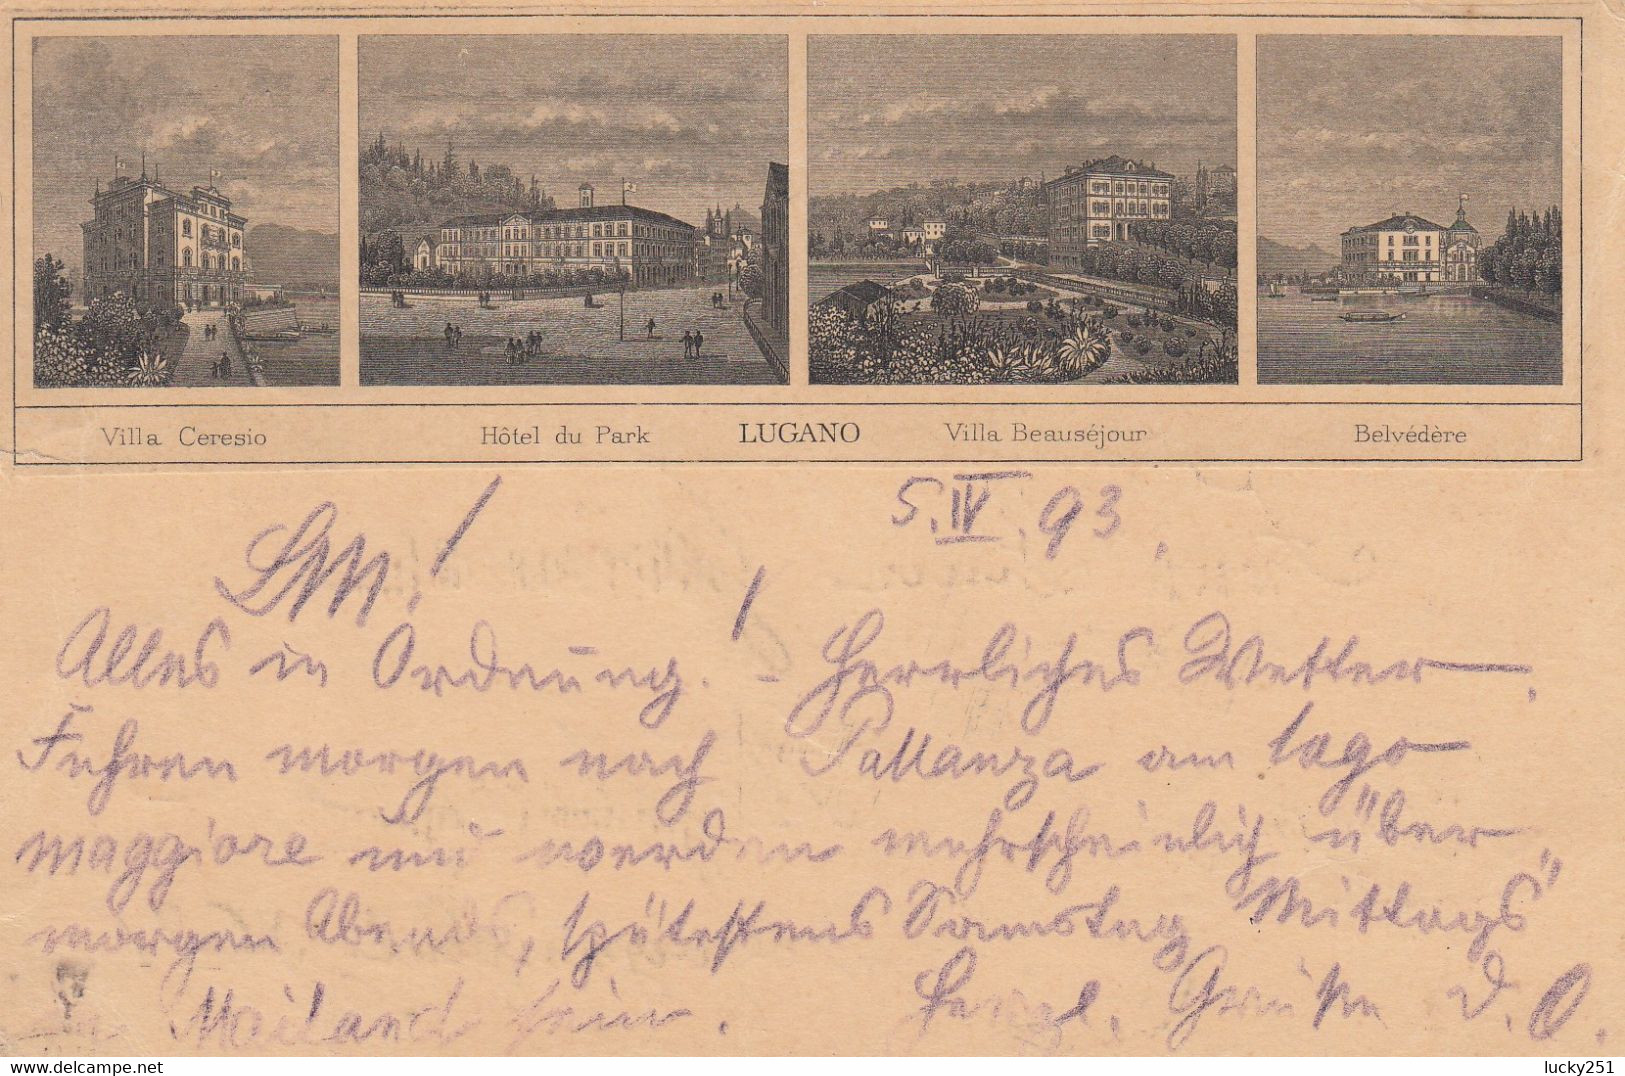 Villa Ceresio Hôtel du Park LUGANO Villa Beauséjour Belvédère
5.IV.93.
Alles in Ordnung. - Herrliches Wetter.
Fuhren morgen nach Pallanza am lago
maggiore und werden wahrscheinlich über
morgen Abends, spätestens Samstag "Mittags"
in Mailand sein. Herzl. Grüße d. O.
delcampe.net
lucky251